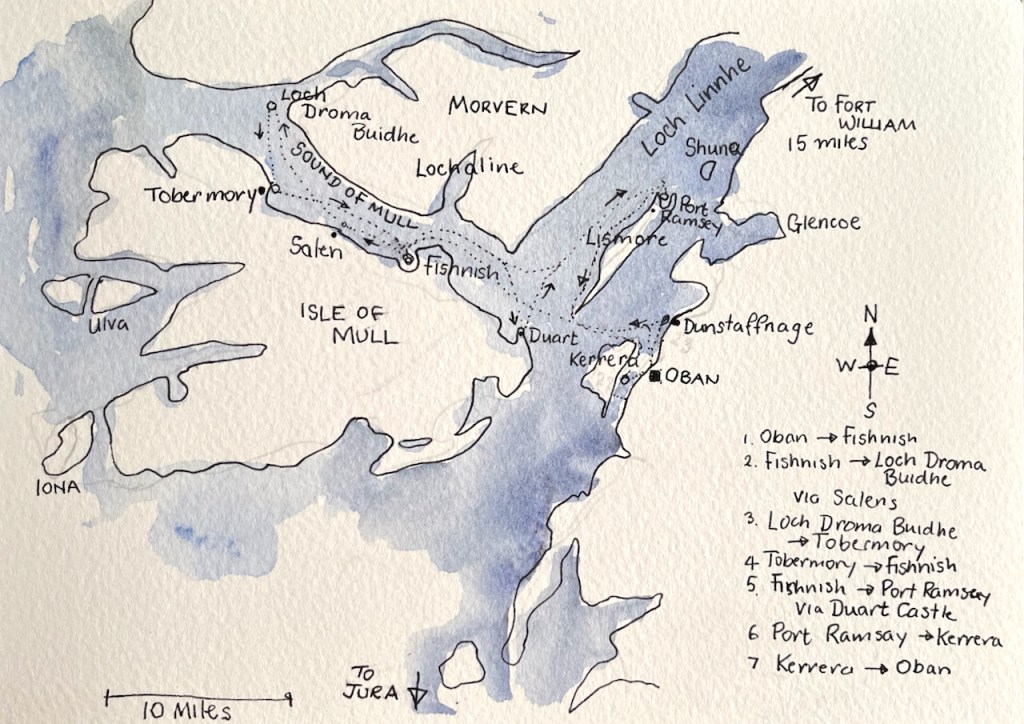 Loch
Droma
Buidhe
MORVERN
Loch Linnhe
TO FORT
WILLIAM
15 miles
Shuna
SOUND OF MULL
Lochaline
Tobermory
Port
Ramsey
Glencoe
Lismore
Salen
Fishnish
Ulva
ISLE OF
MULL
Duart
Dunstaffnage
Kerrera
OBAN
N
W E
S
IONA
1. Oban → Fishnish
2. Fishnish → Loch Droma
Buidhe
via Salens
3. Loch Droma Buidhe
→ Tobermory
4 Tobermory → Fishnish
5. Fishnish → Port Ramsay
via Duart Castle
6 Port Ramsay → Kerrera
7 Kerrera → Oban
TO
JURA
10 MILES